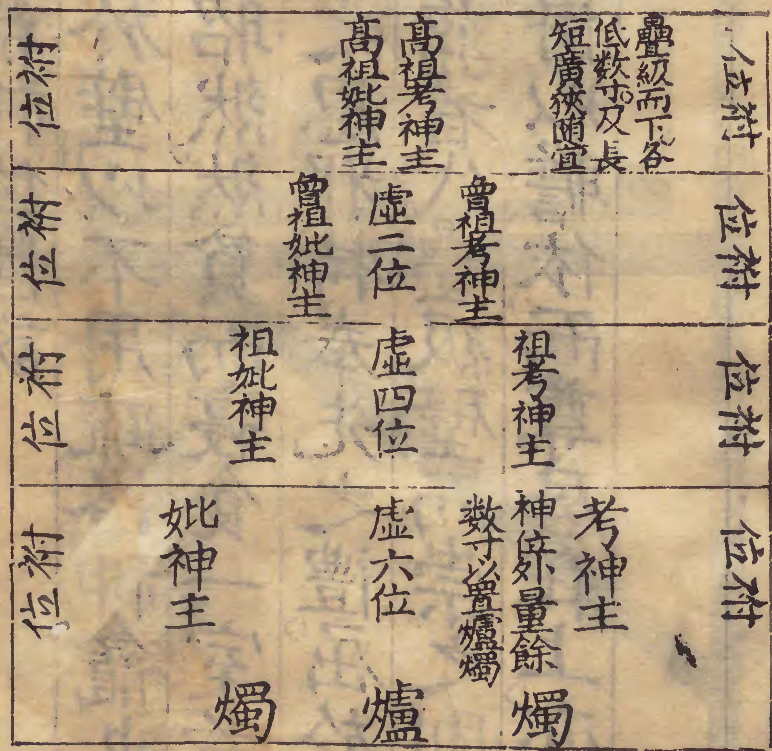 祔位
疊級而下各
低数寸及長
短廣狹随宜
高祖考神主
高祖妣神主
祔位
祔位
曾祖考神主
虛二位
曾祖妣神主
祔位
祔位
祖考神主
虛四位
祖妣神主
祔位
祔位
考神主
神位外量餘
数寸以置爐燭
虛六位
妣神主
祔位
燭
爐
燭